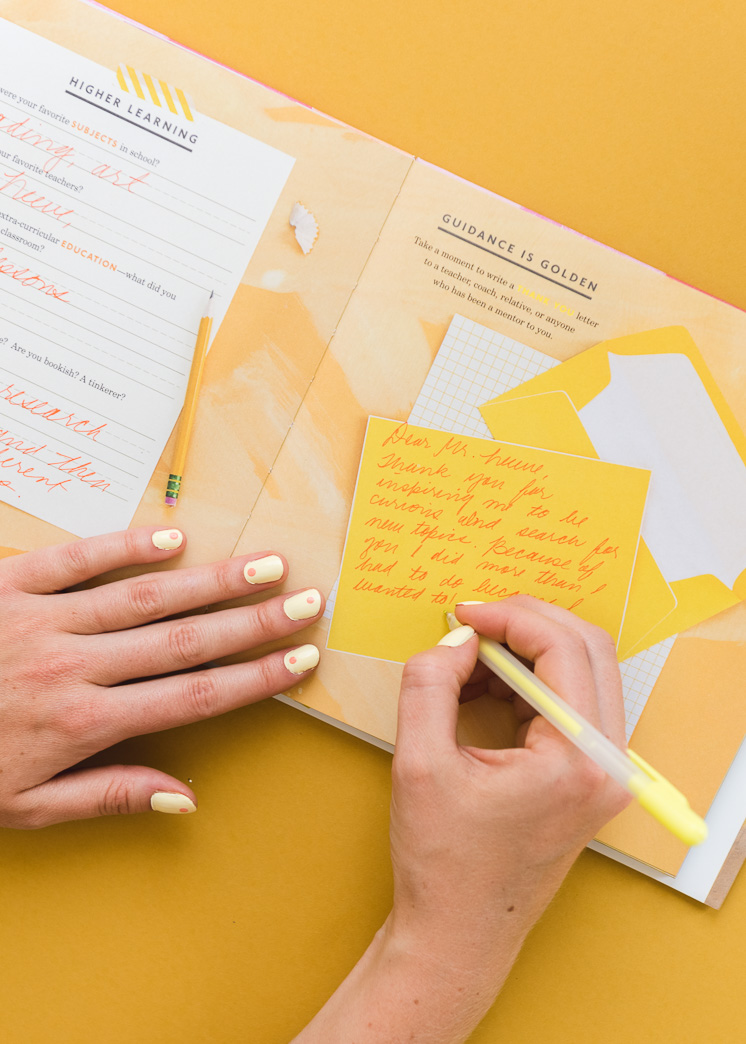 HIGHER LEARNING
were your favorite SUBJECTS in school?
art
favorite teachers?
extra-curricular EDUCATION—what did you
classroom?
Are you bookish? A tinkerer?
research
and then
GUIDANCE IS GOLDEN
Take a moment to write a THANK YOU letter
to a teacher, coach, relative, or anyone
who has been a mentor to you.
Dear Mr.
Thank you for
inspiring me to be
curious and search for
new topics. Because of
you I did more than I
had to do because I
wanted to!